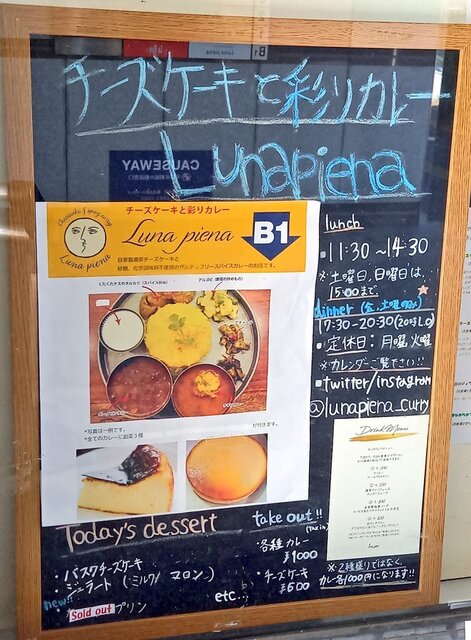 チーズケーキと彩りカレー
Lunapiena
CAUSEWAY
チーズケーキと彩りカレー
Luna piena
B1
Luna piena
自家製濃厚チーズケーキと
砂糖、化学調味料不使用のグルテンフリースパイスカレーのお店です。
*写真は一例です。
*全てのカレーに副菜3種
が付きます。
lunch
・11:30~14:30
※土曜日、日曜日は、
15:00まで
dinner (金、土曜のみ)
17:30-20:30(20時L.O)
・定休日: 月曜, 火曜
※カレンダーご覧下さい!!
・twitter/instagram
@lunapiena_curry
Drink Menu
Today's dessert
・バスクチーズケーキ
・ジェラート (ミルク/マロン)
new!!
Sold out プリン
etc...
take out!!
(tax in)
・各種カレー
¥1000
・チーズケーキ
¥600
※2種盛りではなく、
カレー各1000円になります!!